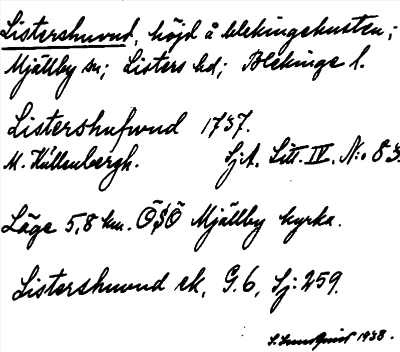 Listershuvud, höjd å blekingekusten;
Mjällby sn; Listers hd; Blekinge l.
Listershufwud 1737.
M. Kullenbergh. Sj.A. Litt. IV. N:o 83.
Läge 5,8 km. ÖSÖ Mjällby kyrka.
Listershuvud ek, G.6, Sj: 259.
1938.